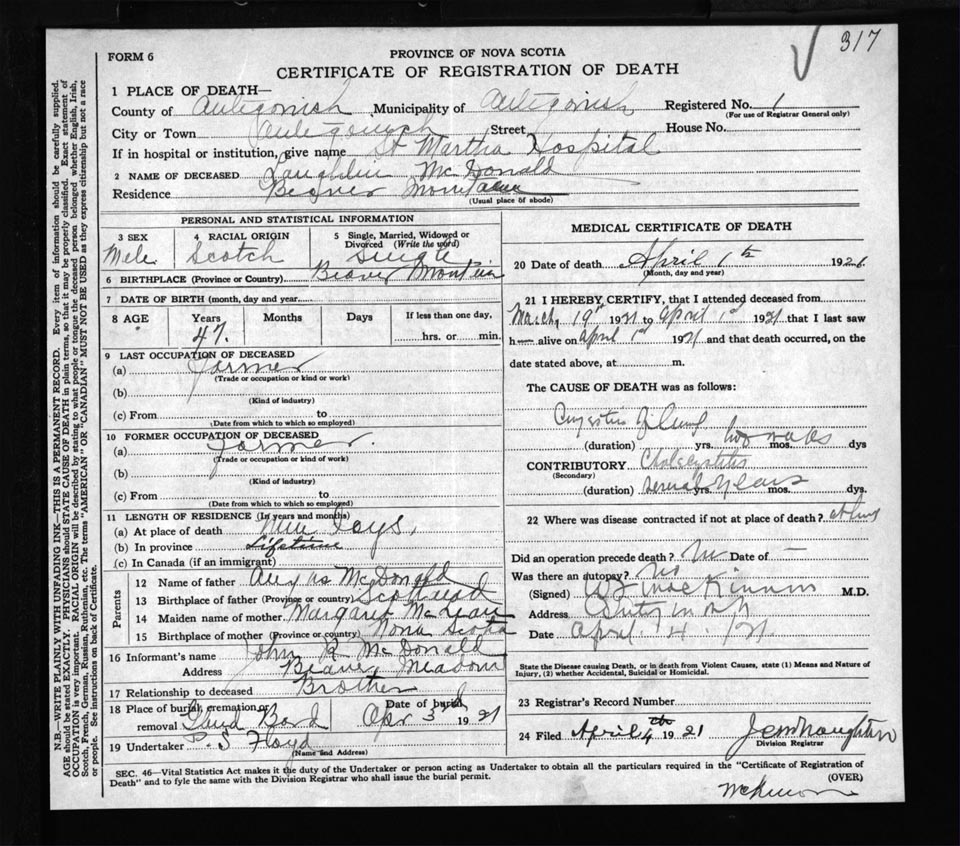 317
FORM 6
PROVINCE OF NOVA SCOTIA
CERTIFICATE OF REGISTRATION OF DEATH
1 PLACE OF DEATH—
County of Antigonish Municipality of Antigonish Registered No. 1
(For use of Registrar General only)
City or Town Antigonish Street, House No.
If in hospital or institution, give name St Martha Hospital
2 NAME OF DECEASED Laughlin McDonald
Residence Beaver Mountain
(Usual place of abode)
PERSONAL AND STATISTICAL INFORMATION
3 SEX Male
4 RACIAL ORIGIN Scotch
5 Single, Married, Widowed or Divorced (Write the word) Single
6 BIRTHPLACE (Province or Country) Beaver Mountain
7 DATE OF BIRTH (month, day and year)
8 AGE Years Months Days If less than one day,
47. hrs. or min.
9 LAST OCCUPATION OF DECEASED
(a) Farmer
(Trade or occupation or kind or work)
(b)
(Kind of industry)
(c) From to
(Date from which to which so employed)
10 FORMER OCCUPATION OF DECEASED
(a) Farmer.
(Trade or occupation or kind of work)
(b)
(Kind of industry)
(c) From to
(Date from which to which so employed)
11 LENGTH OF RESIDENCE (In years and months)
(a) At place of death Nine Days,
(b) In province Lifetime
(c) In Canada (if an immigrant)
Parents
12 Name of father McDonald
13 Birthplace of father (Province or country) Scotland
14 Maiden name of mother Margaret McLean
15 Birthplace of mother (Province or country) Nova Scotia
16 Informant's name John R McDonald
Address Beaver Meadow
17 Relationship to deceased Brother
18 Place of burial, cremation or removal Date of burial
Apr 3rd 1921
19 Undertaker P. S. Floyd
(Name and Address)
MEDICAL CERTIFICATE OF DEATH
20 Date of death April 1st 1921.
(Month, day and year)
21 I HEREBY CERTIFY, that I attended deceased from
March 19th 1921 to April 1st 1921 that I last saw
h alive on April 1st 1921 and that death occurred, on the
date stated above, at m.
The CAUSE OF DEATH was as follows:
(duration) yrs. two mos. dys
CONTRIBUTORY Cholecystitis
(Secondary)
(duration) Several yrs. years mos. dys.
22 Where was disease contracted if not at place of death?
Did an operation precede death? No Date of —
Was there an autopsy? No
(Signed) MacKinnon M.D.
Address
Date April 4. /21
State the Disease causing Death, or in death from Violent Causes, state (1) Means and Nature of
Injury, (2) whether Accidental, Suicidal or Homicidal.
23 Registrar's Record Number
24 Filed April 4th 1921
Division Registrar
SEC. 46—Vital Statistics Act makes it the duty of the Undertaker or person acting as Undertaker to obtain all the particulars required in the "Certificate of Registration of
Death" and to fyle the same with the Division Registrar who shall issue the burial permit.
(OVER)
McKinnon
N.B.—WRITE PLAINLY WITH UNFADING INK—THIS IS A PERMANENT RECORD. Every item of information should be carefully supplied.
AGE should be stated EXACTLY. PHYSICIANS should STATE CAUSE OF DEATH in plain terms, so that it may be properly classified. Exact statement of
OCCUPATION is very important. RACIAL ORIGIN will be described by stating to what people or tongue the deceased person belonged whether English, Irish,
Scotch, French, German, Russian, Ruthenian, etc. The terms "AMERICAN" OR "CANADIAN" MUST NOT BE USED as they express citizenship but not a race
or people. See instructions on back of Certificate.